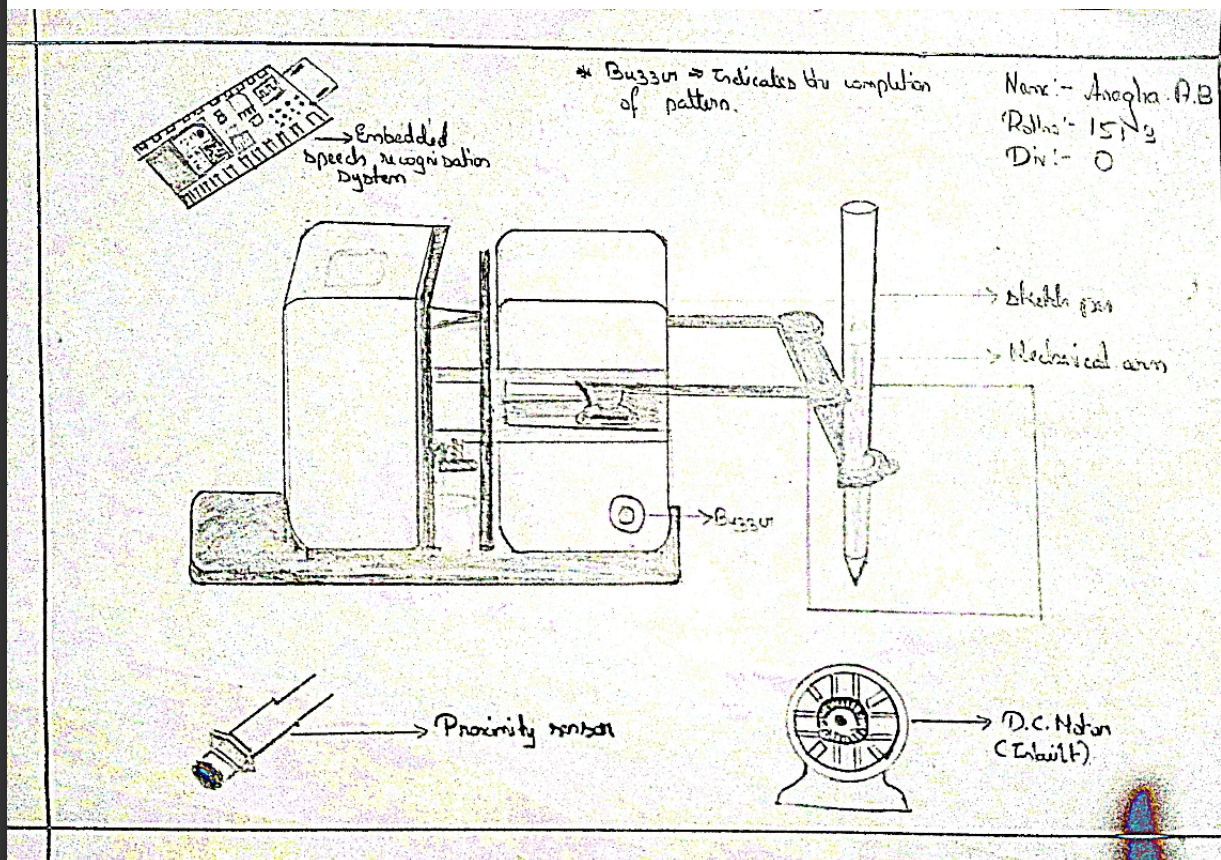 * Buzzer => Indicates the completion
of pattern.
Name:- Anagha.A.B
Div:-
Embedded
speech recognisation
system
sketch pen
Mechanical arm
Buzzer
Proximity sensor
D.C. Motor
(Inbuilt)